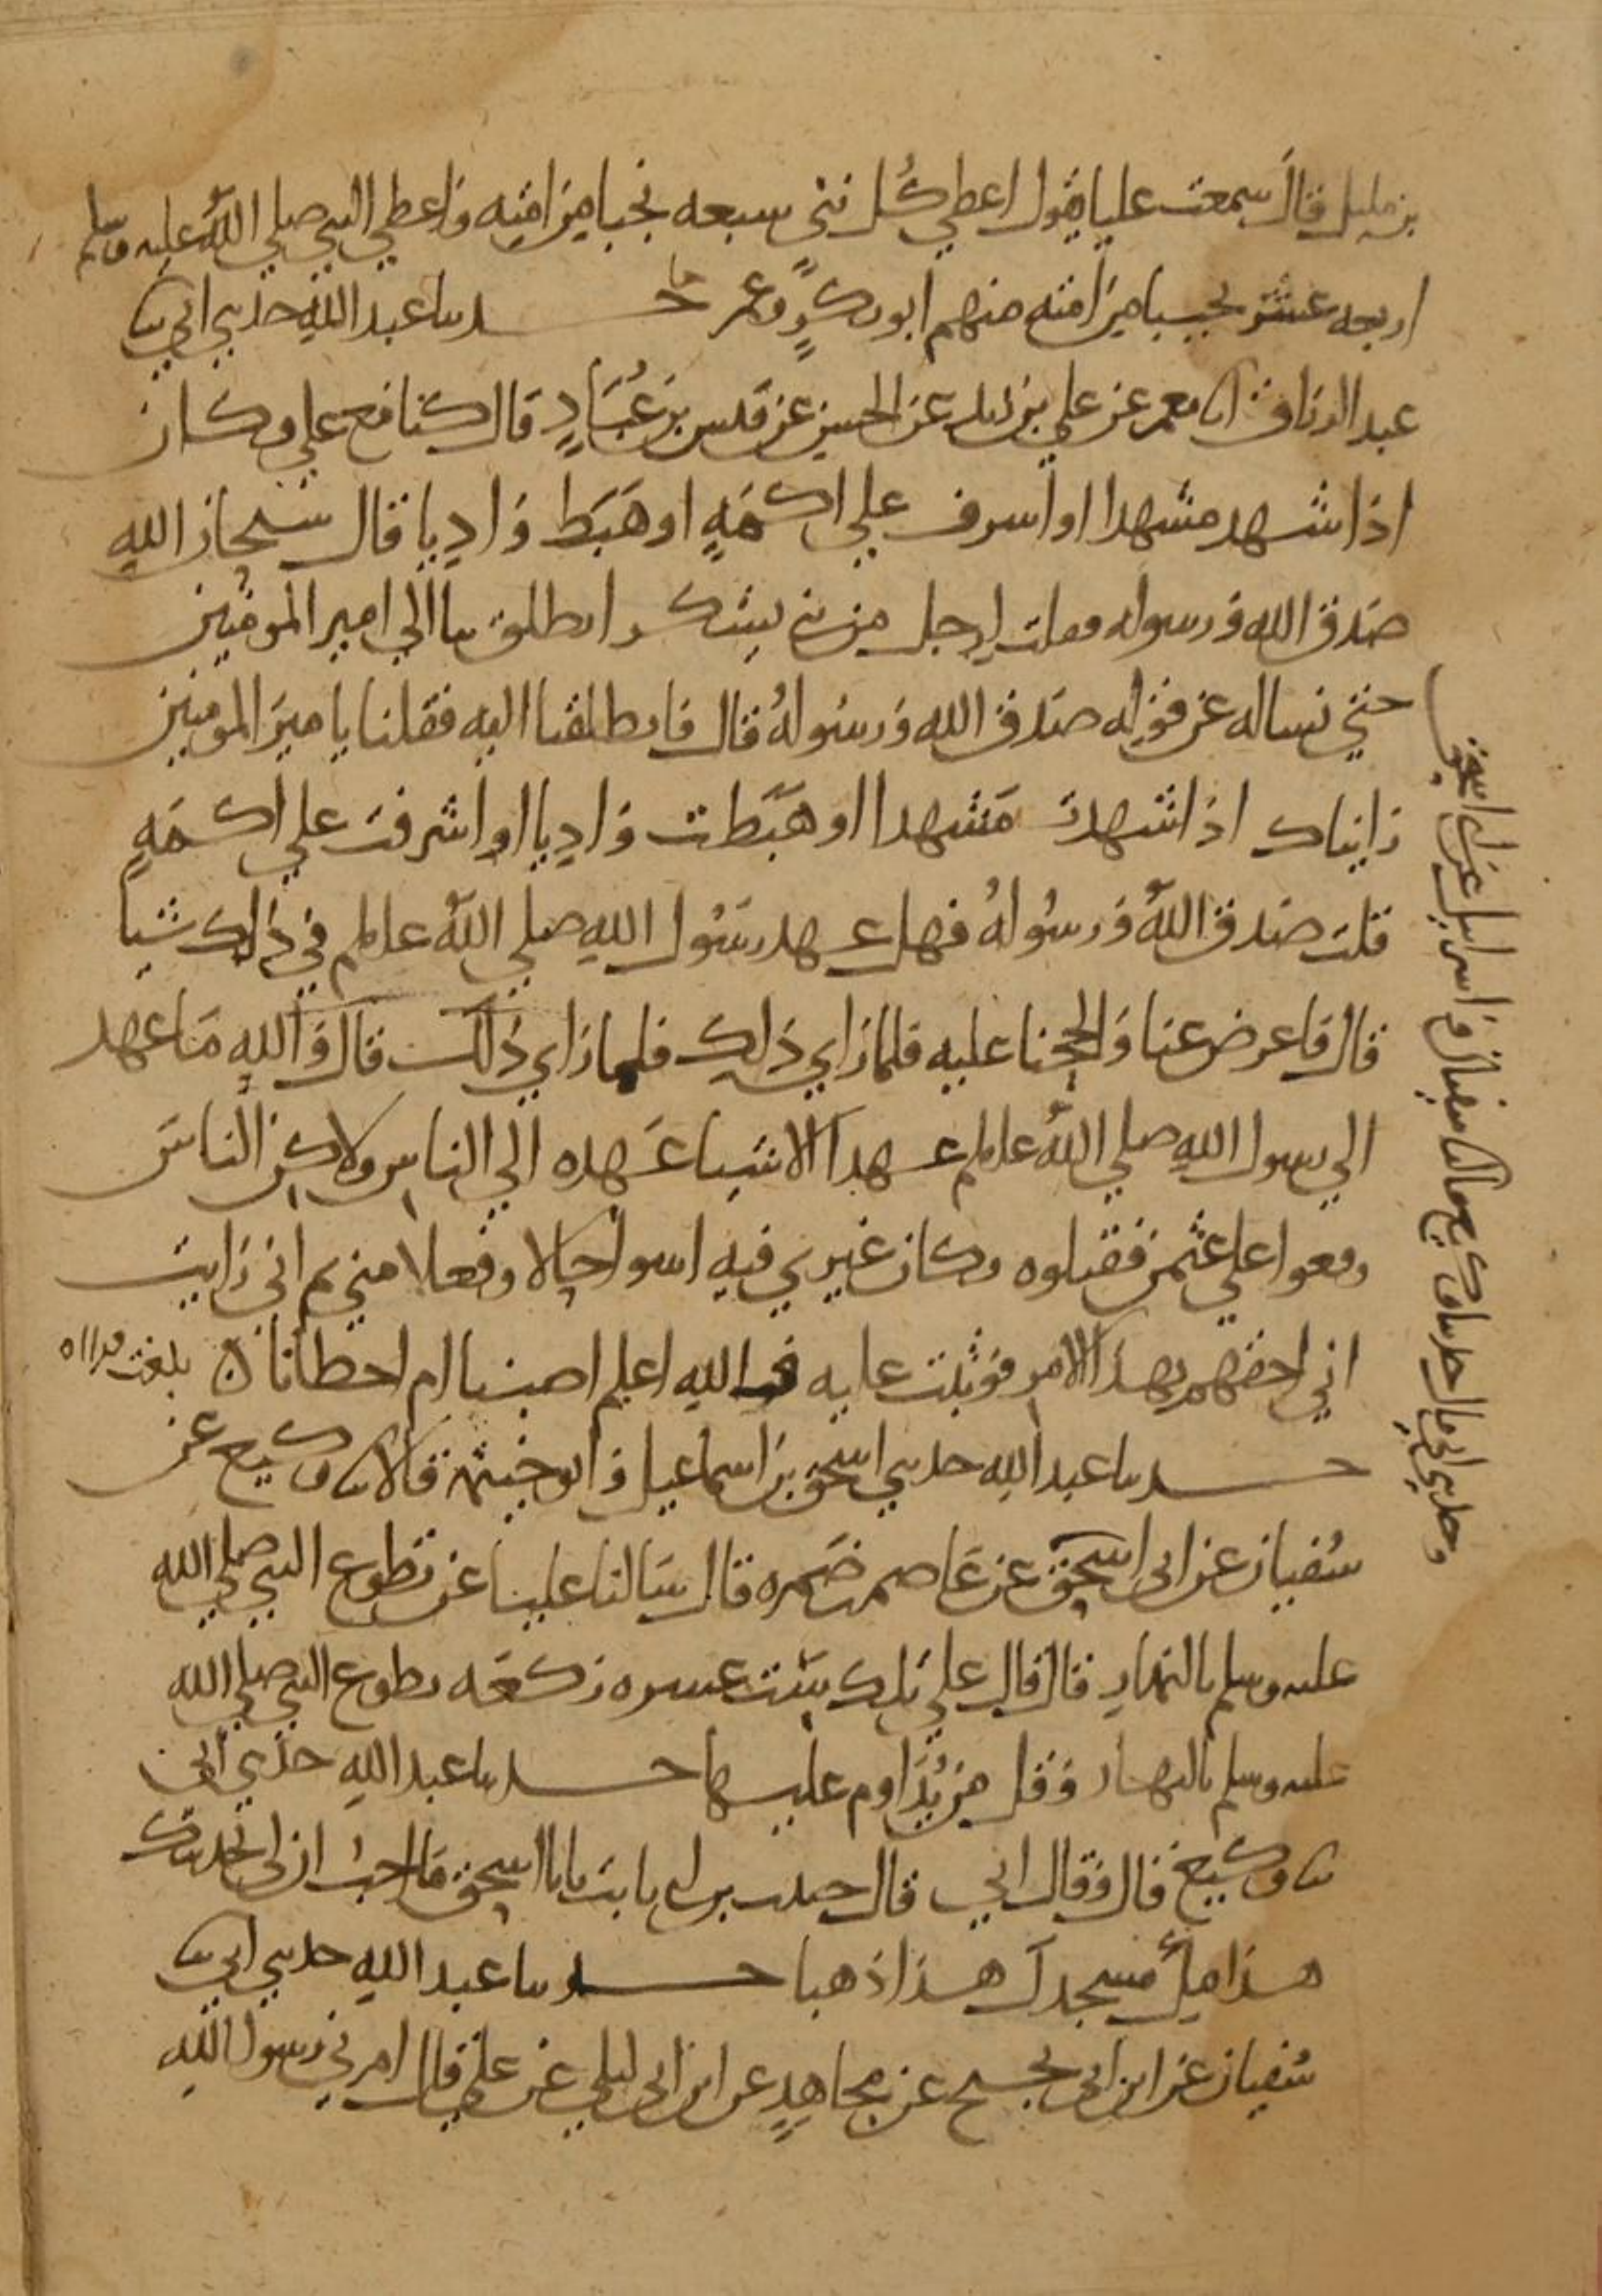 بن مليل قال سمعت عليا يقول اعطي كل نبي سبعه نجبا من امته واعطي النبي صلي الله عليه وسلم
اربعه عشر نجيبا من امته منهم ابو بكر وعمر حدثنا عبد الله حدثني ابي ثنا
عبد الرزاق انا معمر عن علي بن زيد عن الحسن عن قيس بن عباد قال كنا مع علي وكان
اذا شهد مشهدا او اشرف علي اكمه او هبط واديا قال سبحان الله
صدق الله ورسوله فقلت لرجل من بني يشكر انطلق بنا الي امير المومنين
حتي نساله عن قوله صدق الله ورسوله قال فانطلقنا اليه فقلنا يا امير المومنين
رايناك اذا شهدت مشهدا او هبطت واديا او اشرفت علي اكمه
قلت صدق الله ورسوله فهل عهد رسول الله صلي الله علىلم في ذلك شيا
قال فاعرض عنا والححنا عليه فلما راي ذلك فلما راي ذلك قال والله ما عهد
الي رسول الله صلي الله علىلم عهدا الا شيا عهده الي الناس ولاكن الناس
وقعوا علي عثمن فقتلوه وكان غيري فيه اسوا حالا وفعلا مني ثم اني رايت
اني احقهم بهذا الامر فوثبت عليه فالله اعلم اصبنا ام اخطانا ه بلغت
حدثنا عبد الله حدثني اسحق بن اسماعيل وابو خيثمه قالا ثنا وكيع عن
سفيان عن ابي اسحق عن عاصم بن ضمره قال سالنا عليا عن تطوع النبي صلي الله
عليه وسلم بالنهار قال قال علي تلك ست عشره ركعه تطوع النبي صلي الله
عليه وسلم بالنهار وقل من يداوم عليها حدثنا عبد الله حدثني ابي
ثنا وكيع قال وقال ابي قال حبيب بن ابي ثابت يا ابا اسحق ما احب ان لي بحديثك
هذا مل مسجدك هذا ذهبا حدثنا عبد الله حدثني ابي ثنا
سفيان عن ابن ابي نجيح عن مجاهد عن ابن ابي ليلي عن علي قال امرني رسول الله
وحدثني ابي قال حدثنا وكيع قال ثنا سفيان واسرايل عن ابي اسحق